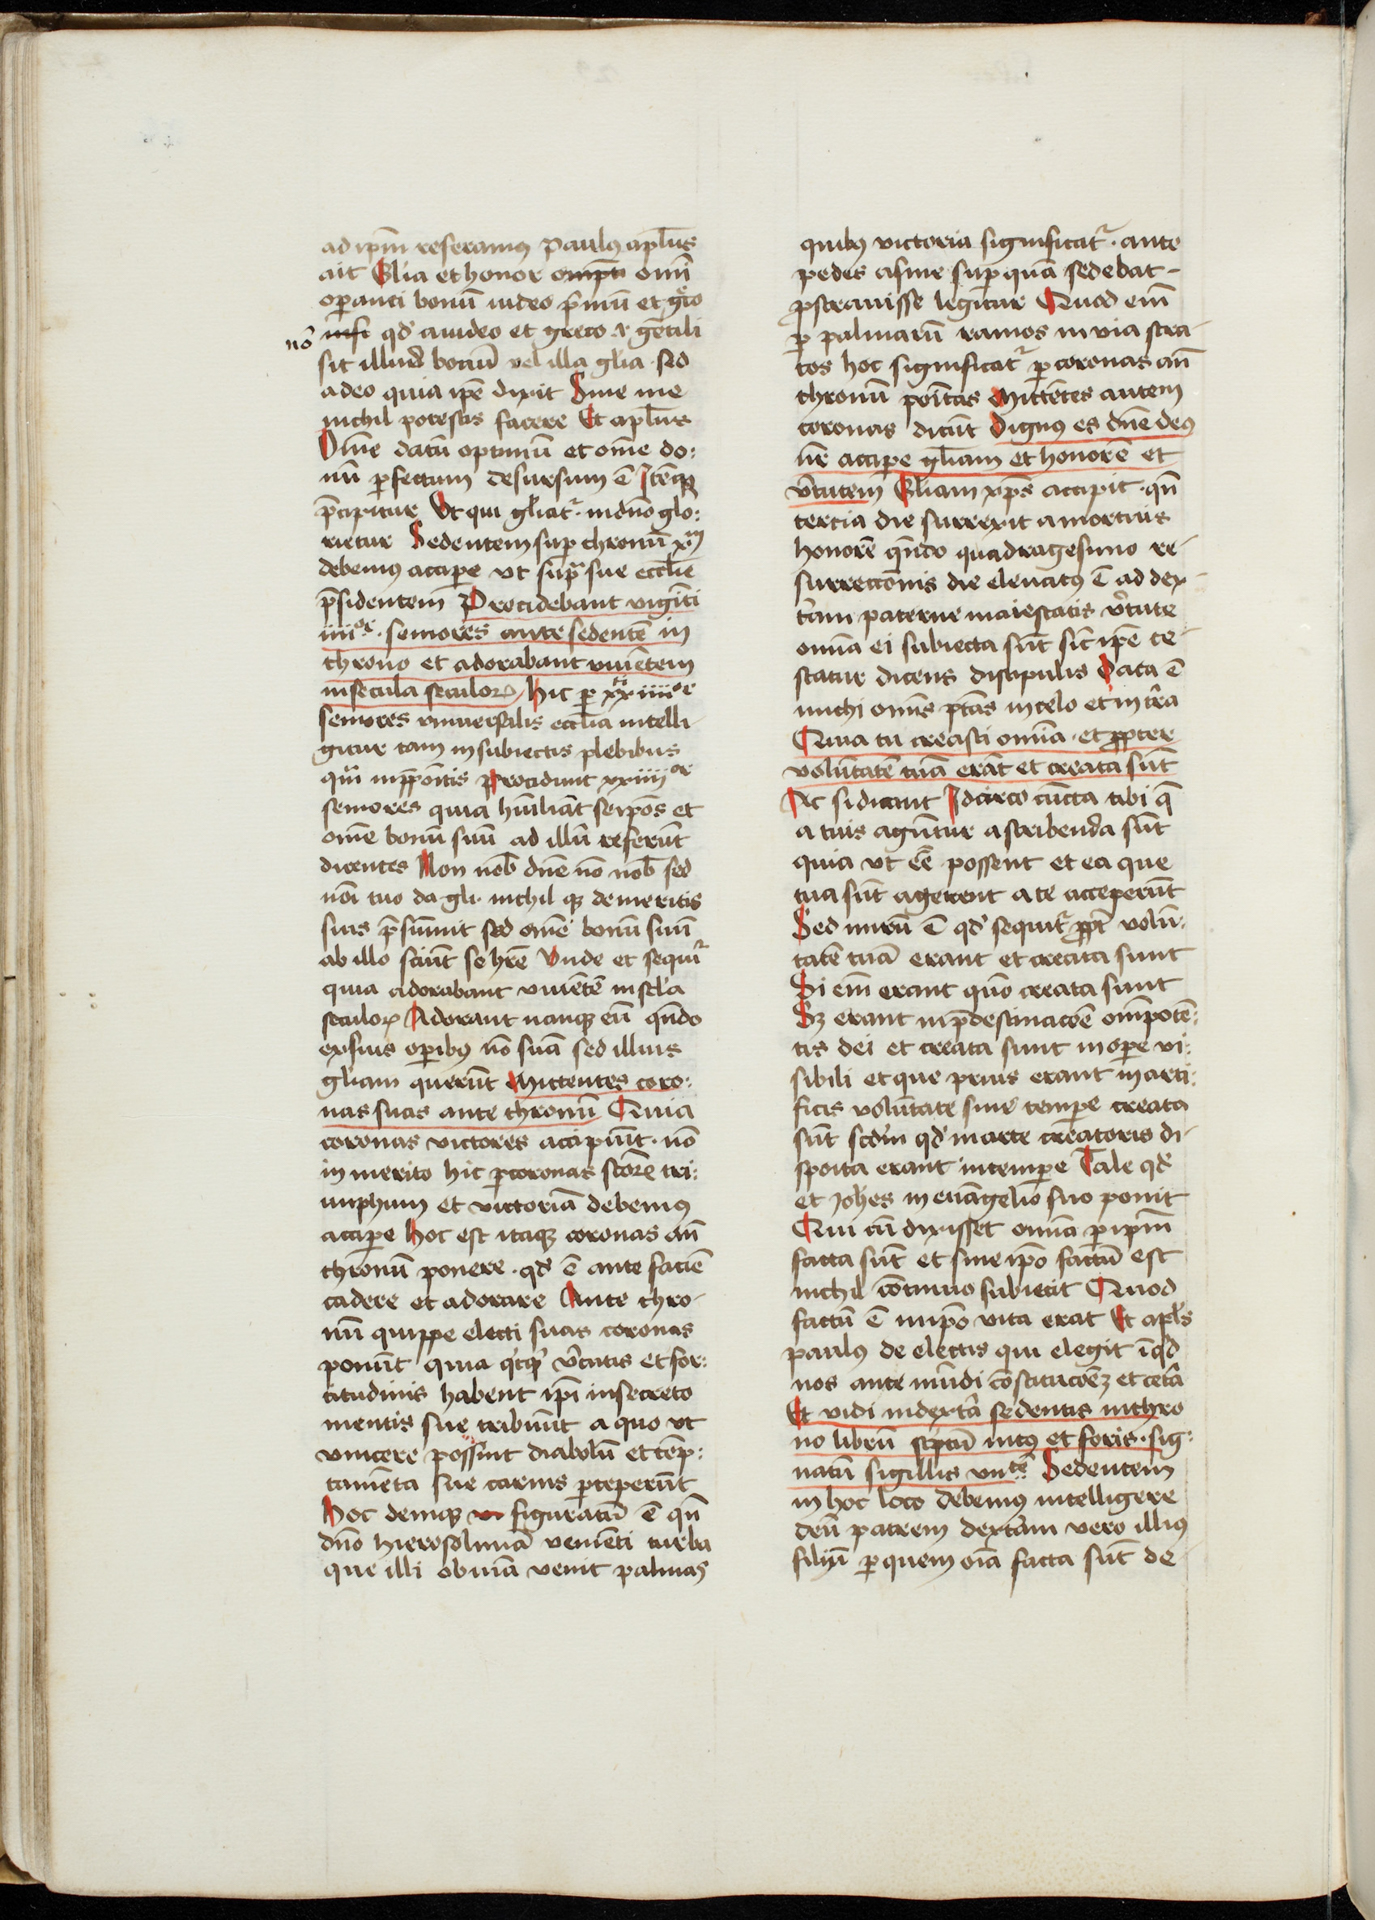 ad ip̄m referamus Paulus apl̄us
ait Gl̄ia et honor om̄i
op̄anti bonū iudeo p̄mū et gͤco
nō qd̓ a iudeo et greco .i. gētili
sit illud̓ bonū vel illa gl̄ia sed
a deo quia ip̄e dixit Sine me
nichil potestis facere Et apl̄us
Om̄e datū optimū et om̄e do:
nū ꝑfectum desursum ē Itēqꝫ
p̄cipitur Vt qui gl̄iat̓ in dn̄o glo:
rietur Sedentem suꝑ thronū xp̄m
debemus acciꝑe vt sup̄ sue eccl̄ie
p̄sidentem Procidebant viginti
iiii͛ᵒʳ seniores ante sedentē in
throno et adorabant viuētem
in secula seculoꝝ hic ꝑ xxiiii͛ᵒʳ
seniores vniuersalis eccl̄ia intelli
gitur tam in subiectis plebibus
qm̄ in p̄poītis Procidunt xxiiii͛ᵒʳ
seniores quia hūiliāt seip̄os et
om̄e bonū suū ad illū referūt
dicentes Non nob̄ dn̄e nō nob̄ sed
noī tuo da gl̄i nichil qꝫ de meritis
suis p̄sūmit sed om̄e bonū suū
ab illo sciūt se hr̄e Vnde et sequit̓
quia adorabant viuētē in scl̄a
seculoꝝ Adorant nanqꝫ eū qn̄do
ex suis oꝑibus nō suā sed illius
gl̄iam querūt Mittentes coro:
nas suas ante thronū Quia
coronas victores accipiūt nō
in merito hic ꝑ coronas sc̄oꝝ tri:
umphum et victoriā debemus
acciꝑe hoc est itaqꝫ coronas an̄
thronū ponere qd̓ ē ante faciē
cadere et adorare Ante thro
nū quippe electi suas coronas
ponūt quia qͥcqͥd v̓tutis et for:
titudinis habent ip̄i in secreto
mentis sue tribuūt a quo vt
vincere possint diabolū et tēp:
tamēta sue carnis ꝑceperūt
hoc deniqꝫ figuratū ē qn̄
dn̄o hierosolimā venieti turba
que illi obuiā venit palmas
quibus victoria significat̓ ante
pedes asine suꝑ quā sedebat
ꝓstrauisse legitur Quod em̄
ꝑ palmarū ramos in via stra
tos hoc significat̓ ꝑ coronas an̄
thronū poītas Mittētes autem
coronas dicūt Dignus es dn̄e deus
nr̄ acciꝑe gl̄iam et honorē et
v̓tutem Gl̄iam xp̄s accipit qn̄
tercia die surrexit a mortuis
honorē qn̄do quadragesimo re
surrectōnis die eleuatus ē ad dex
t̓am paterne maiestatis v̓tute
omīa ei subiecta sūt sic̄ ip̄e te
statur dicens discipulis Data ē
michi omīs p̄tas in celo et in tr̄a
Quia tu creasti omīa et ꝓpter
volūtatē tuā erāt et creata sūt
Ac si dicant Idcirco cūcta tibi q̄
a tuis agūtur ascribenda sūt
quia vt ēē possent et ea que
tua sūt agerent a te acceperūt
Sed mirū ē qd̓ sequit̓ ꝓpt̓ volū:
tatē tuā erant et creata sunt
Si em̄ erant quō creata sunt
Sꝫ erant in p̄destinacōe om̄ipotē:
tis dei et creata sunt in oꝑe vi:
sibili et que prius erant in arti:
ficis volūtate sine temꝑe creata
sūt scd̄m qd̓ in arte creatoris di
spoīta erant in temꝑe Tale qd̓
et Joh̄es in euāgelio suo ponit
Qui cū dixisset omīa ꝑ ip̄m
facta sūt et sine ip̄o factū est
nichil cōtinuo subiecit Quod
factū ē in ip̄o vita erat Et apl̄s
paulus de electis qui elegit inqͥd
nos ante mūdi cōstitucōeꝫ et cet̓a
Et vidi in dext̓a sedentis in thro
no librū sc̓ptū intus et foris sig:
natū sigillis vii͛ᵗᵉ Sedentem
in hoc loco debemus intelligere
deū patrem dext̓am vero illius
filiū ꝑ quem oīa facta sūt de